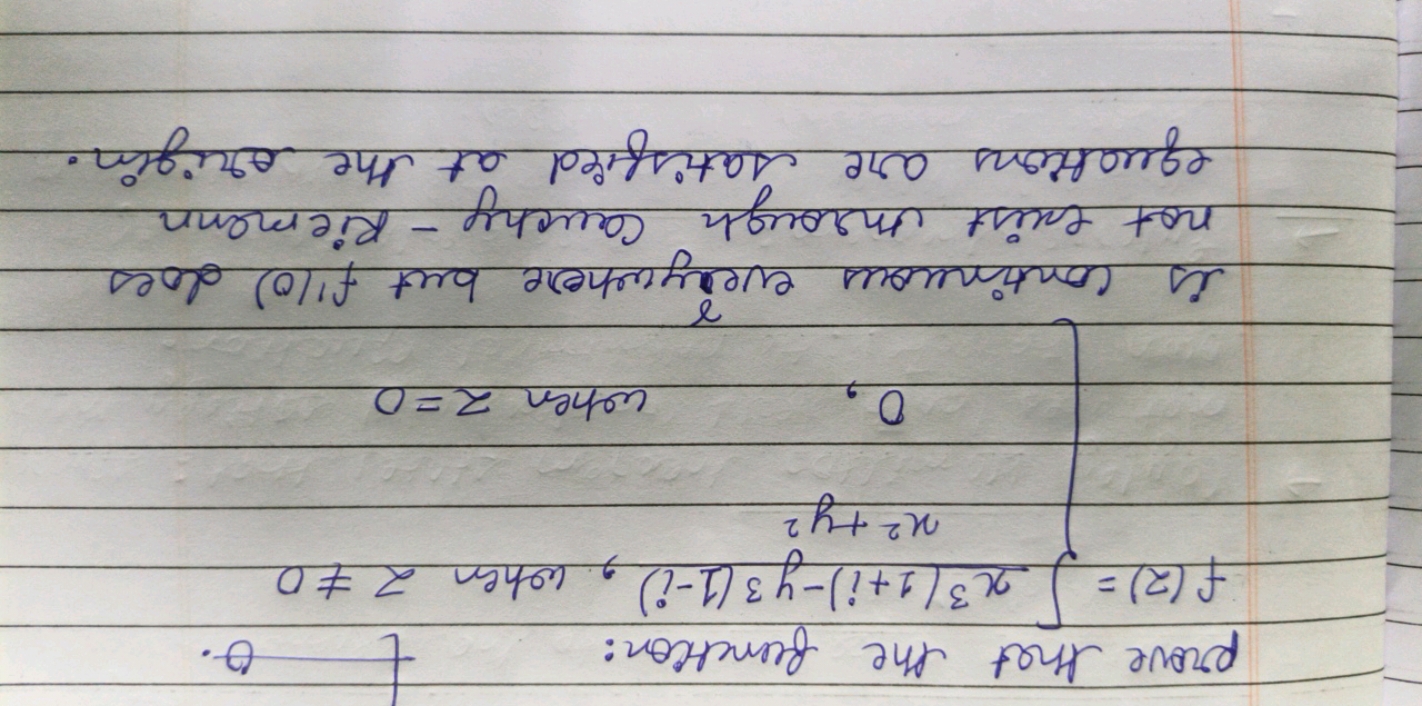 prove that the function:
f(z) = { x³(1+i)-y³(1-i) , when z ≠ 0
x² + y²
0, when z=0
is continuous everywhere but f'(0) does
not exist through Cauchy - Riemann
equations are satisfied at the origin.